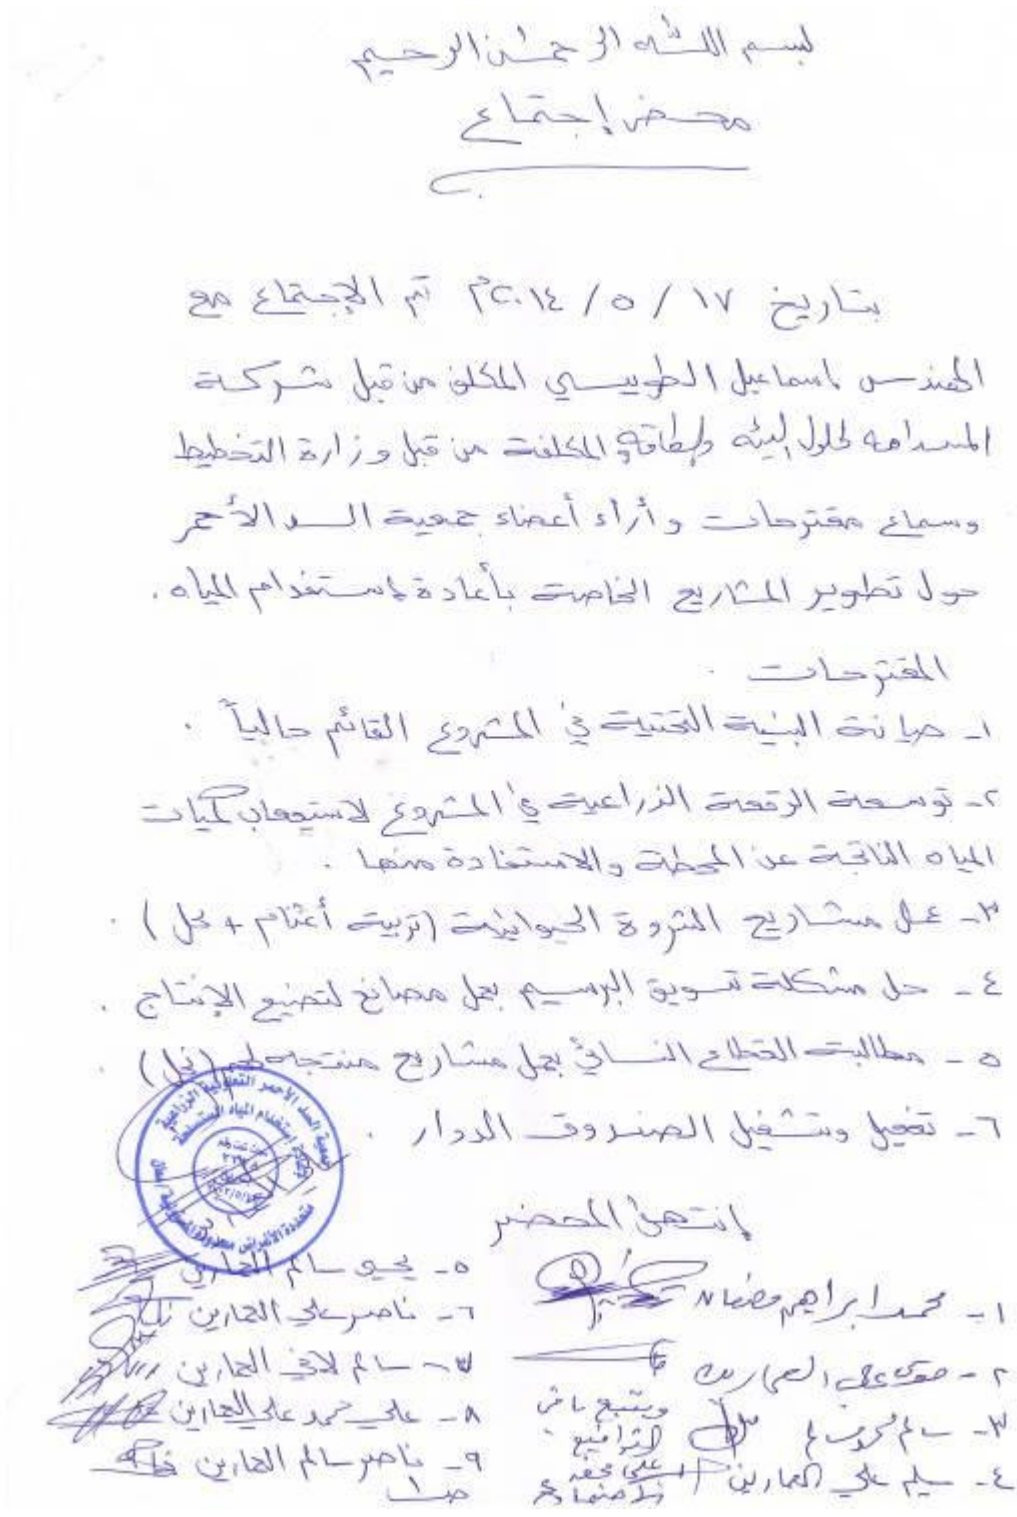 بسم الله الرحمن الرحيم
محضر إجتماع
بتاريخ ١٧ / ٥ / ٢٠١٤م تم الإجتماع مع
المهندس اسماعيل الطويسي المكلف من قبل شركة
المستدامه لحلول البيئه والطاقه والمكلفة من قبل وزارة التخطيط
وسماع مقترحات وأراء أعضاء جمعية السد الأحمر
حول تطوير المشاريع الخاصة بأعادة إستخدام المياه .
المقترحات .
١- صيانة البنية التحتية في المشروع القائم حالياً .
٢- توسعة الرقعة الزراعية في المشروع لاستيعاب كميات
المياه الناتجة عن المحطة والاستفادة منها .
٣- عمل مشاريع الثروة الحيوانية (تربية أغنام + نحل) .
٤- حل مشكلة تسويق البرسيم بعمل مصانع لتصنيع الإنتاج .
٥- مطالبة القطاع النسائي بعمل مشاريع منتجه لهم (نحل) .
٦- تفعيل وتشغيل الصندوق الدوار .
جمعية السد الأحمر التعاونية الزراعية
إنتهى المحضر
١- محمد ابراهيم رمضان
٢- علي العمارين
٣- سالم
٤- سليم علي العمارين
ويتبع باقي
التواقيع
على
الاجتماع
٥- يحيى سالم العمارين
٦- ناصر علي العمارين
٧- سالم لافي العمارين
٨- علي حمد علي العمارين
٩- ناصر سالم العمارين
ص١